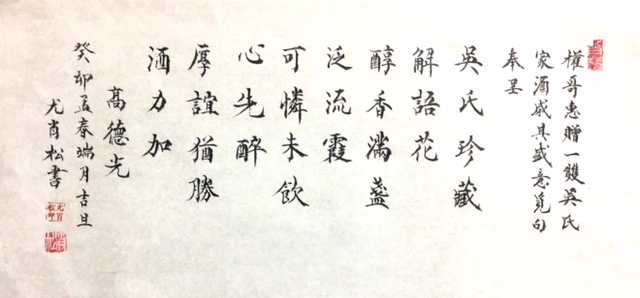 權哥惠贈一雙吳氏
家酒感其盛意覓句
奉呈
吳氏珍藏
解語花
醇香滿盞
泛流霞
可憐未飲
心先醉
厚誼猶勝
酒力加
高德光
癸卯孟春端月吉旦
尤肖松書